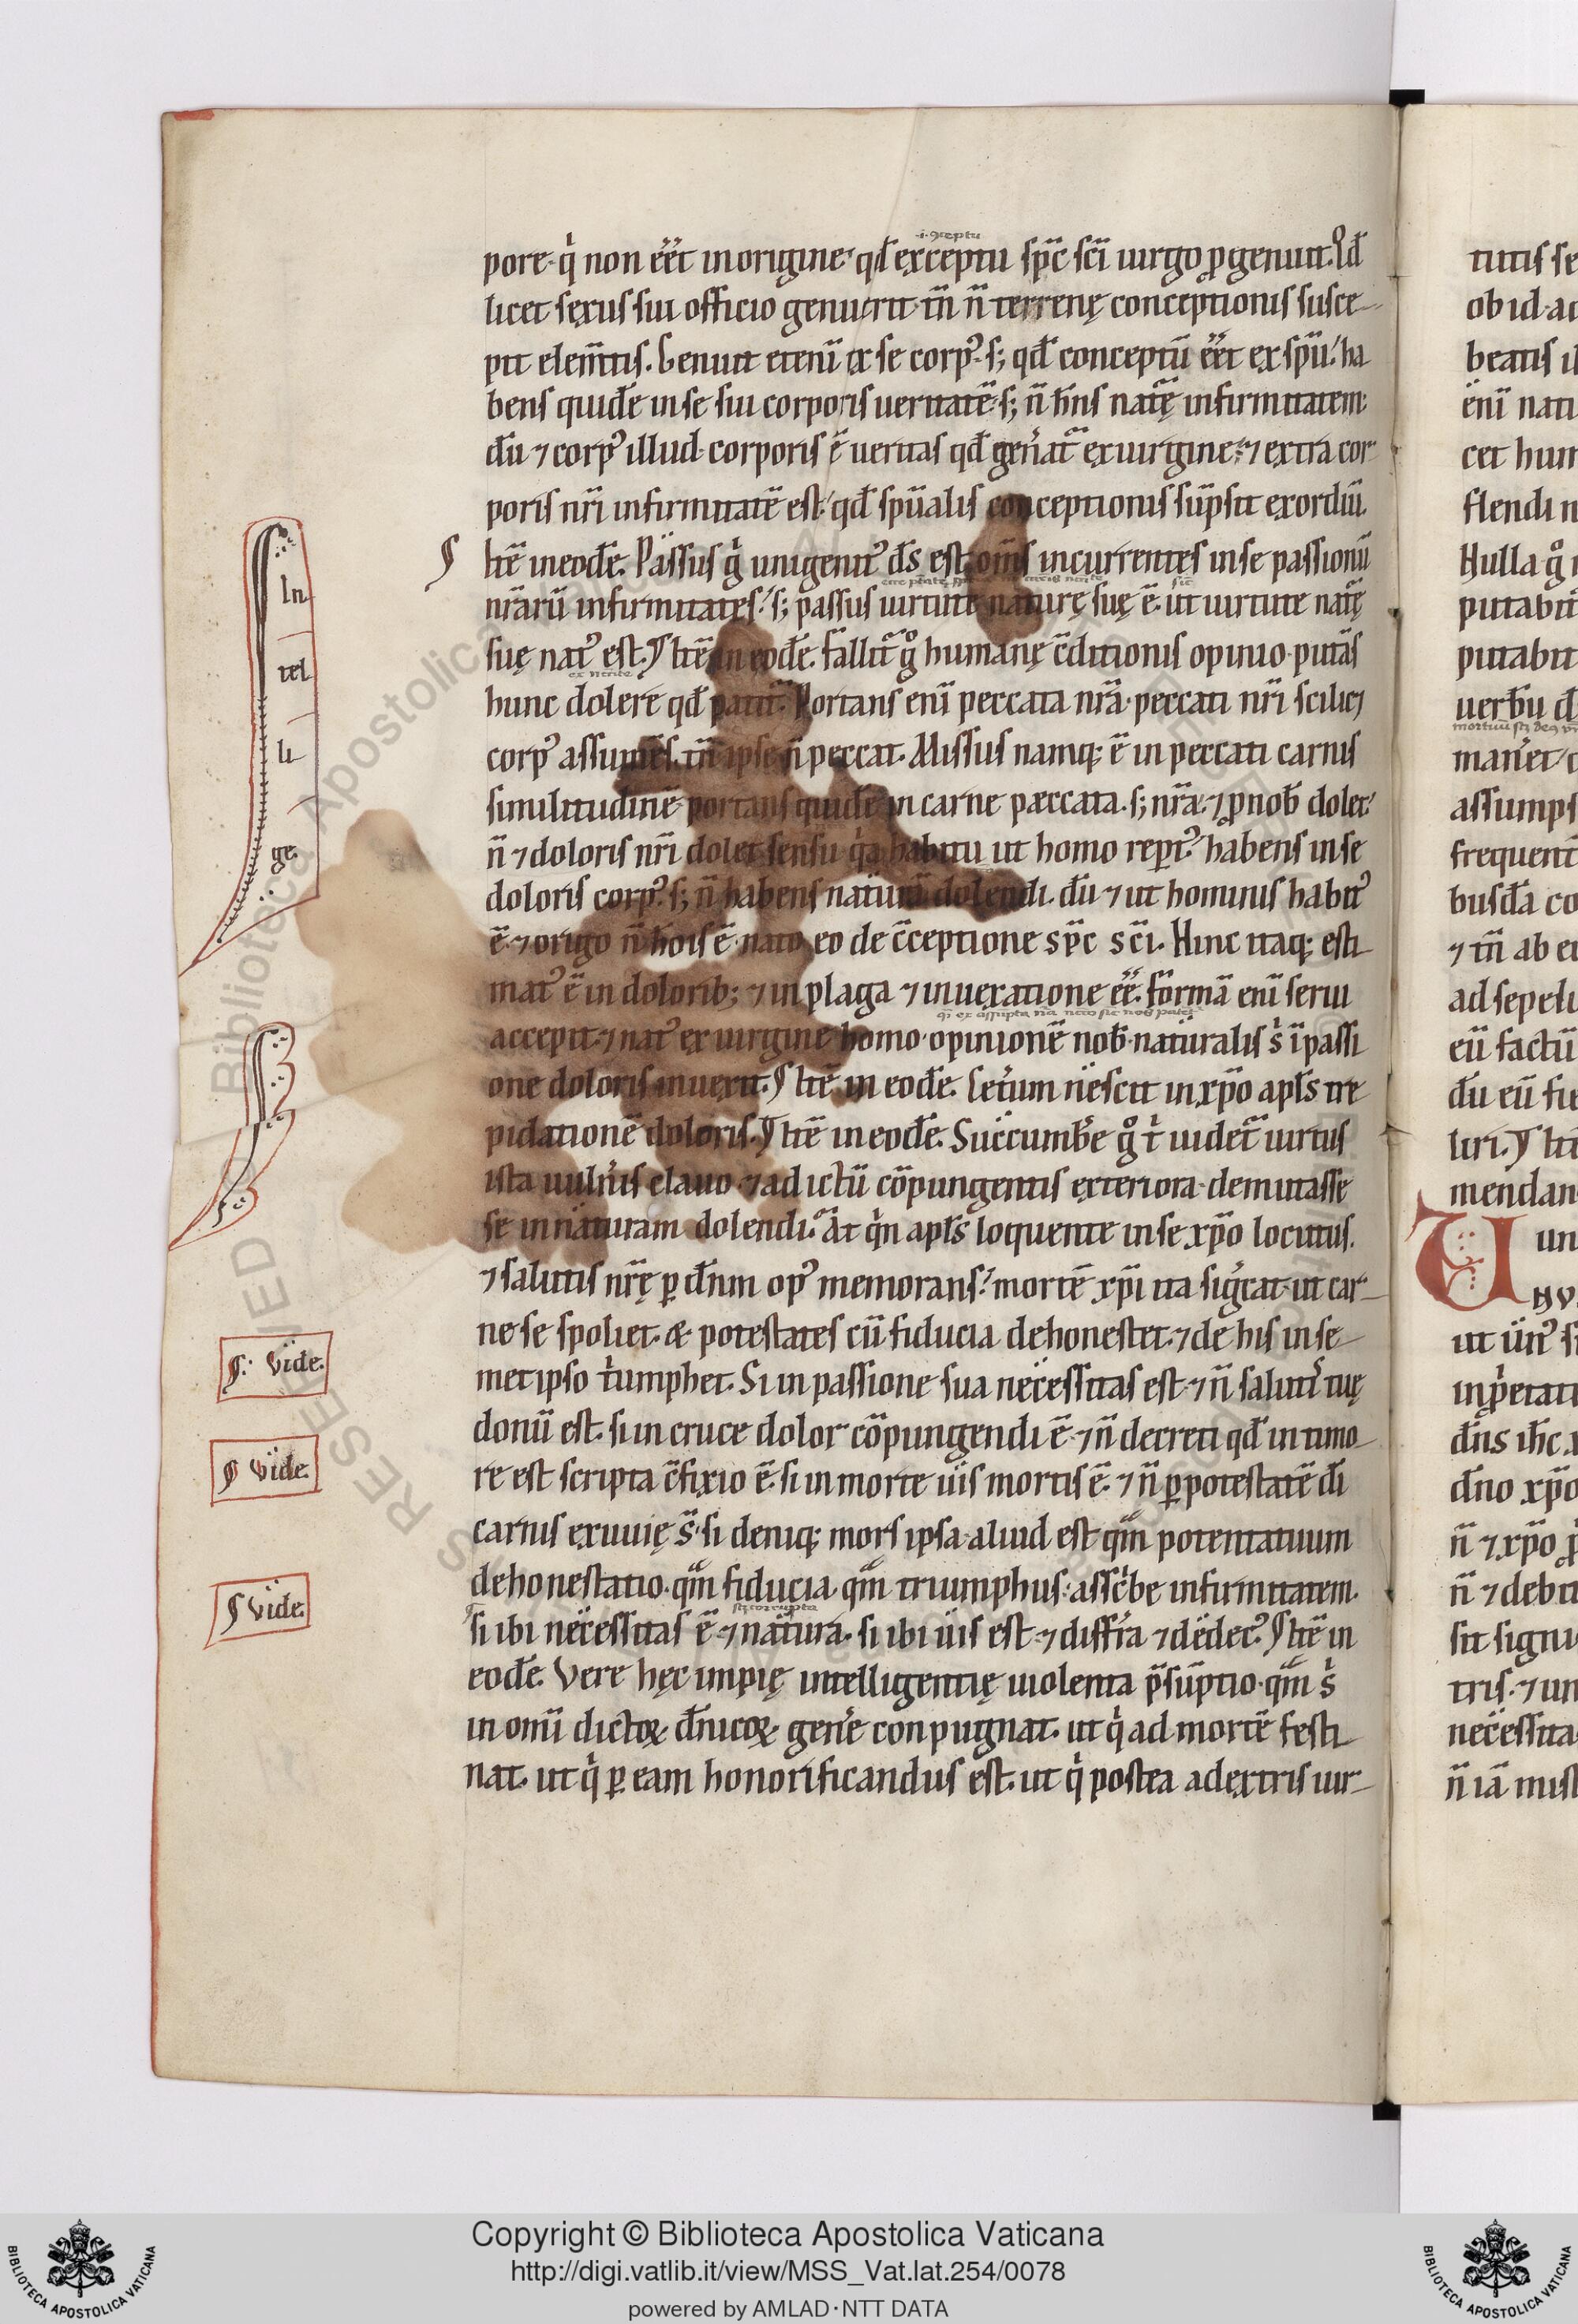 ·i· ↄceptu
pore· qⁱ non eēt in origine· qđ exceptu sp̄c sc̄i uirgo ꝓgenuit. Id
licet sexus sui officio genuerit· tn̄ n̄ terrenę conceptionis susce-
pit elem̄tis. Genuit etenī ex se corpꝰ· s; qđ conceptū eēt ex sp̄u· ha
bens quidē in se sui corporis ueritatē· s; n̄ hn̄s natᷓę infirmitatem·
dū ⁊ corpꝰ illud· corporis ē ueritas qđ gen̓atᷓ ex uirgine· ⁊ extra cor-
poris nr̄i infirmitatē est· qđ sp̄ualis conceptionis sūpsit exordiū.
Itē in eodē. Passus gͥ unigenitꝰ dš est om̄s incurrentes in se passionū
nr̄arū infirmitates· s; passus uirtute naturę suę ē· ut uirtute natᷓę
suę natꝰ est. ⸿ Itē in eodē. Fallitᷓ gͦ humanę c̄ditionis opinio· putās
hunc dolere qđ patitᷓ. Portans enī peccata nr̄a· peccati nr̄i scilicꝫ
corpꝰ assumēs· tn̄ ipse n̄ peccat. Missus namq; ē in peccati carnis
similitudinē· portans quidē in carne pæccata· s; nr̄a· ⁊ ꝓ nob̄ dolet·
n̄ ⁊ doloris nr̄i dolet sensu qͥa habitu ut homo repꝑtꝰ· habens in se
doloris corpꝰ· s; n̄ habens naturā dolendi· dū ⁊ ut hominis habitꝰ
ē· ⁊ origo n̄ hōis ē· nato eo de c̄ceptione sp̄c sc̄i. Hinc itaq; esti-
matꝰ ē in dolorib; ⁊ in plaga ⁊ in uexatione eē. formā enī serui
accepit· ⁊ natꝰ ex uirgine homo· opinionē nob̄· naturalis sͥ ī passi
one doloris inuexit. ⸿ Itē in eodē. Set̓um nescit in xp̄o apl̄s tre
pidationē doloris. ⸿ Itē in eodē. Succumb̓e gͦ tͥ uidetᷓ uirtus
ista uuln̓is clauo· ⁊ ad ictū cōpungentis exteriora· demutasse
se in naturam dolendi. At qͥn apl̄s loquente in se xp̄o locutus.
⁊ salutis nr̄ę ꝑ dn̄m opꝰ memorans· mortē xp̄i ita sigͥcat· ut car-
ne se spoliet· æ potestates cū fiducia dehonestet· ⁊ de his in se-
met ipso tͥumphet. Si in passione sua necessitas est· ⁊ n̄ salutͥ tuę
donū est· si in cruce dolor cōpungendi ē· ⁊ n̄ decreti qđ in timo-
re est scripta c̄fixio ē· si in morte uis mortis ē· ⁊ n̄ ꝑ potestatē dī
carnis exuuię s̄· si deniq; mors ipsa aliud est qm̄ potentatuum
dehonestatio· qm̄ fiducia· qm̄ triumphus· asscͥbe infirmitatem·
si ibi necessitas ē· ⁊ natura· si ibi uis est· ⁊ diffīa ⁊ dedecꝰ. ⸿ Itē in
eodē. Vere hęc impię intelligentię uiolenta p̄sūptio· qm̄ sͥ
in omī dictoꝝ dn̄icoꝝ gen̓e conpugnat· ut qͥ ad mortē festi-
nat· ut qͥ ꝑ eam honorificandus est· ut qͥ postea a dextris uir-
In
tel
li
ge.
S: Vide.
⸿ Vide.
⸿ Vide.
tutis se
ob id· a
beatis
enī nat
cet hum
flendi n
Nulla gͦ
putabit
putabit
uerbū d
man̓et
assumps
frequent
busdā co
⁊ tn̄ ab e
ad sepel
eū factū
dū eū fi
liri. ⸿ It
mendan
U un
ut ūnꝰ s
in p̓etat
dn̄s ih̄c
dn̄o xp̄o
n̄ ⁊ xp̄o
n̄ ⁊ debi
sit signi
tris· ⁊ un
necessita
n̄ iā mis
Copyright © Biblioteca Apostolica Vaticana
http://digi.vatlib.it/view/MSS_Vat.lat.254/0078
powered by AMLAD·NTT DATA
BIBLIOTECA APOSTOLICA VATICANA
BIBLIOTECA APOSTOLICA VATICANA